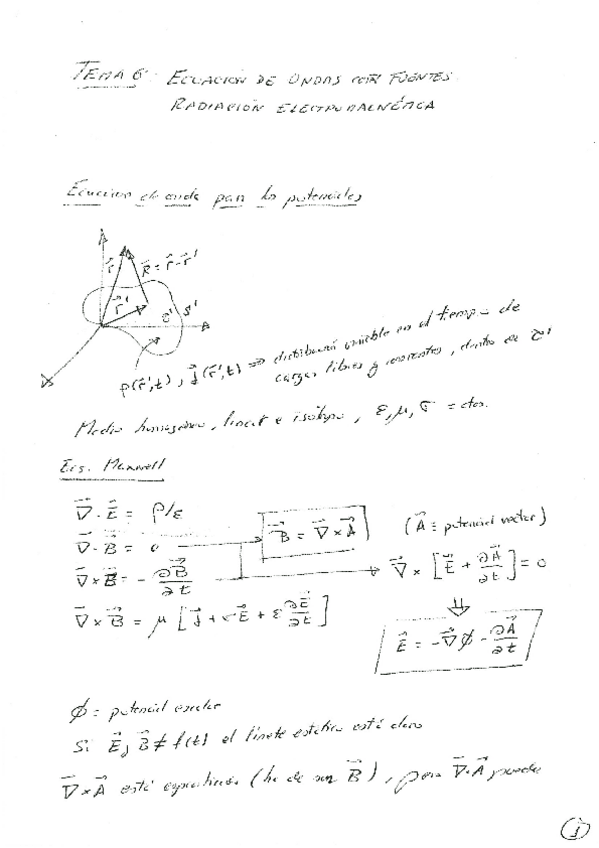 TEMA 6: ECUACIÓN DE ONDAS CON FUENTES.
RADIACIÓN ELECTROMAGNÉTICA
Ecuaciones de onda para los potenciales
r⃗ R⃗ = r⃗ - r⃗'
r⃗' τ' S'
ρ(r⃗',t), j⃗(r⃗',t) ⟹ distribución variable en el tiempo de
cargas libres y corrientes, dentro de τ'
Medio homogéneo, lineal e isótropo, ε, μ, σ = ctes.
Ecs. Maxwell
∇⃗·E⃗ = ρ/ε
∇⃗·B⃗ = 0 → B⃗ = ∇⃗×A⃗ (A⃗ ≡ potencial vector)
∇⃗×E⃗ = -∂B⃗/∂t → ∇⃗×[E⃗ + ∂A⃗/∂t] = 0
∇⃗×B⃗ = μ[j⃗ + σE⃗ + ε ∂E⃗/∂t]
⇓
E⃗ = -∇⃗ϕ - ∂A⃗/∂t
ϕ = potencial escalar
Si E⃗, B⃗ ≠ f(t) el límite estático está claro
∇⃗×A⃗ está especificado (ha de ser B⃗), pero ∇⃗·A⃗ puede
1